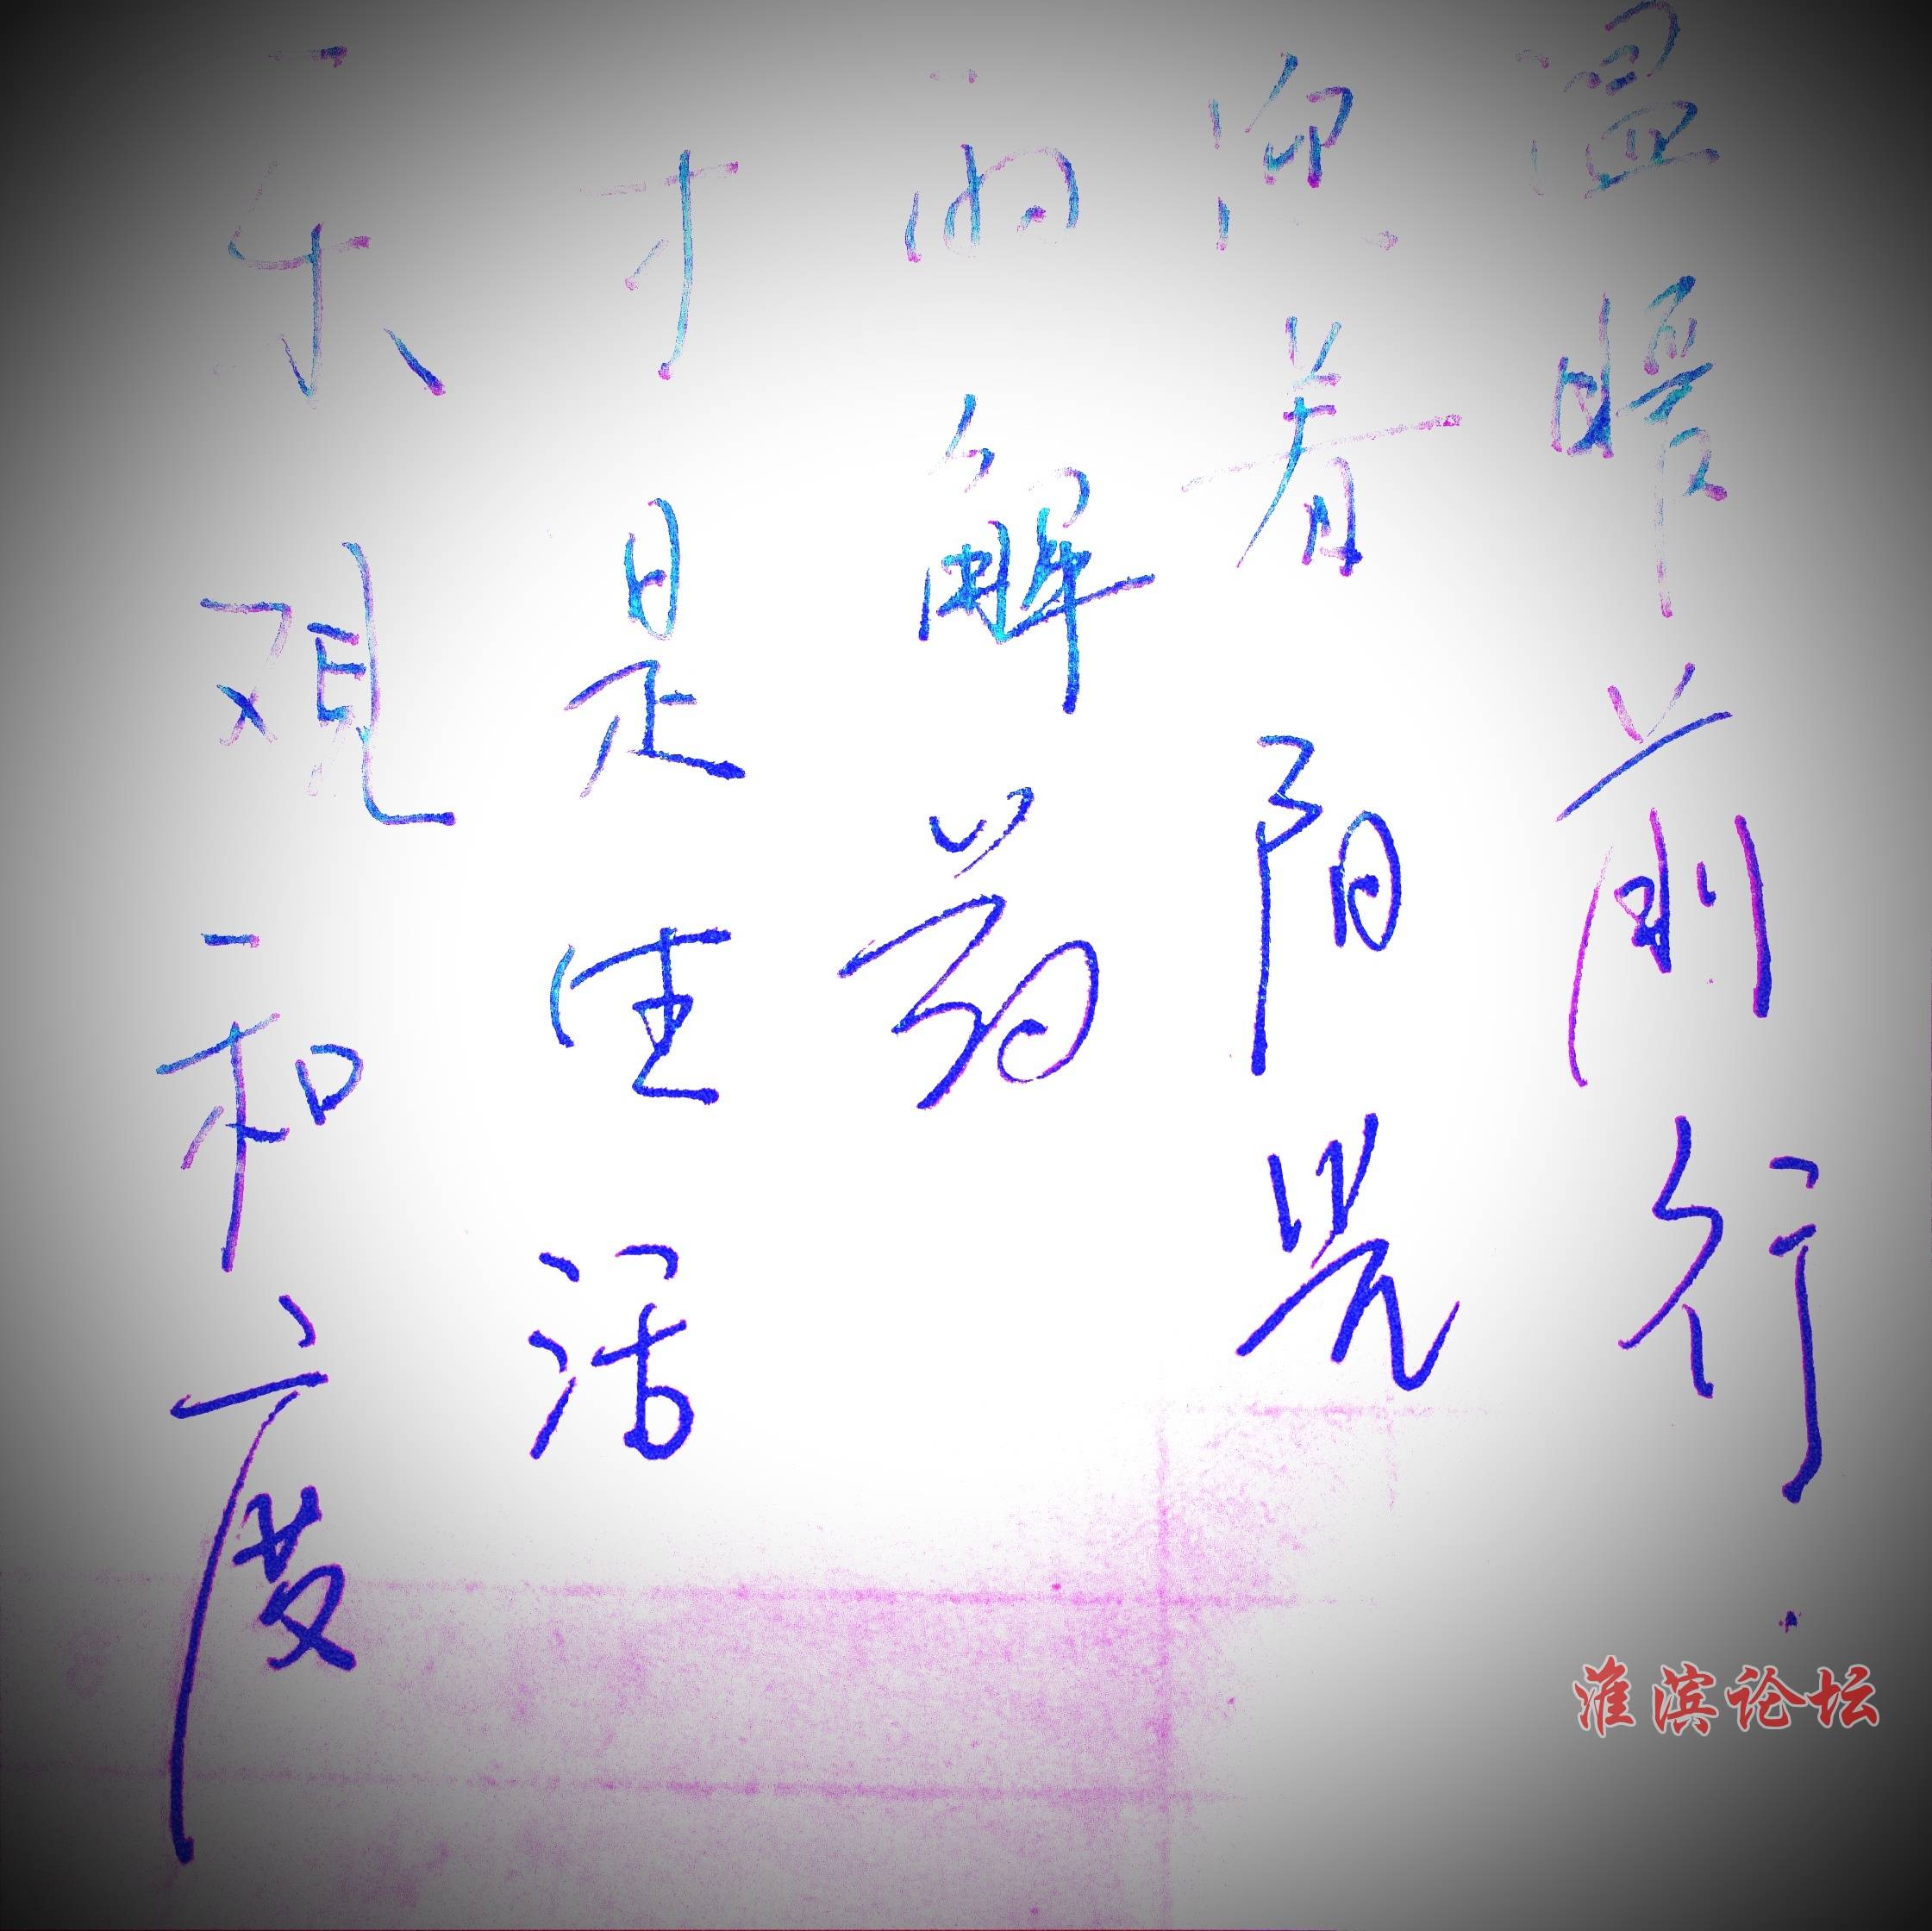 乐观和度
才是生活
的解药
迎着阳光
温暖前行.
淮滨论坛